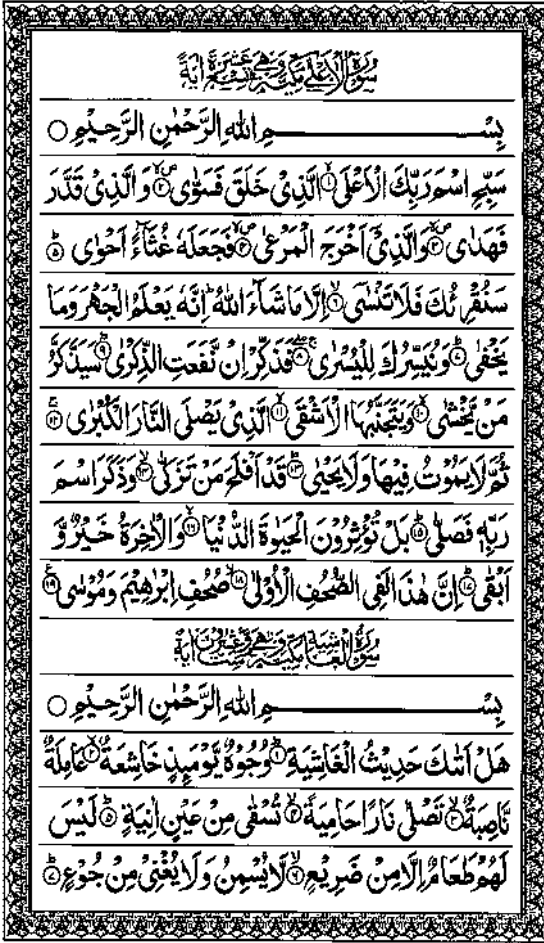 سُوْرَةُ الْاَعْلٰى مَكِّيَّةٌ وَّهِىَ تِسْعَ عَشْرَةَ اٰيَةً
بِسْمِ اللهِ الرَّحْمٰنِ الرَّحِيْمِ ○
سَبِّحِ اسْمَ رَبِّكَ الْاَعْلَى ۙ﴿۱﴾ الَّذِىْ خَلَقَ فَسَوّٰى ۪ۙ﴿۲﴾ وَ الَّذِىْ قَدَّرَ
فَهَدٰى ۪ۙ﴿۳﴾ وَالَّذِىْۤ اَخْرَجَ الْمَرْعٰى ۪ۙ﴿۴﴾ فَجَعَلَهٗ غُثَآءً اَحْوٰى ؕ﴿۵﴾
سَنُقْرِئُكَ فَلَا تَنْسٰٓى ۙ﴿۶﴾ اِلَّا مَا شَآءَ اللهُ ؕ اِنَّهٗ يَعْلَمُ الْجَهْرَ وَمَا
يَخْفٰى ؕ﴿۷﴾ وَنُيَسِّرُكَ لِلْيُسْرٰى ۚۖ﴿۸﴾ فَذَكِّرْ اِنْ نَّفَعَتِ الذِّكْرٰى ؕ﴿۹﴾ سَيَذَّكَّرُ
مَنْ يَّخْشٰى ۙ﴿۱۰﴾ وَيَتَجَنَّبُهَا الْاَشْقَى ۙ﴿۱۱﴾ الَّذِىْ يَصْلَى النَّارَ الْكُبْرٰى ۚ﴿۱۲﴾
ثُمَّ لَا يَمُوْتُ فِيْهَا وَلَا يَحْيٰى ؕ﴿۱۳﴾ قَدْ اَفْلَحَ مَنْ تَزَكّٰى ۙ﴿۱۴﴾ وَذَكَرَ اسْمَ
رَبِّهٖ فَصَلّٰى ؕ﴿۱۵﴾ بَلْ تُؤْثِرُوْنَ الْحَيٰوةَ الدُّنْيَا ۖ﴿۱۶﴾ وَالْاٰخِرَةُ خَيْرٌ وَّ
اَبْقٰى ؕ﴿۱۷﴾ اِنَّ هٰذَا لَفِى الصُّحُفِ الْاُوْلٰى ۙ﴿۱۸﴾ صُحُفِ اِبْرٰهِيْمَ وَمُوْسٰى ﴿۱۹﴾
سُوْرَةُ الْغَاشِيَةِ مَكِّيَّةٌ وَّهِىَ سِتٌّ وَّعِشْرُوْنَ اٰيَةً
بِسْمِ اللهِ الرَّحْمٰنِ الرَّحِيْمِ ○
هَلْ اَتٰىكَ حَدِيْثُ الْغَاشِيَةِ ؕ﴿۱﴾ وُجُوْهٌ يَّوْمَئِذٍ خَاشِعَةٌ ۙ﴿۲﴾ عَامِلَةٌ
نَّاصِبَةٌ ۙ﴿۳﴾ تَصْلٰى نَارًا حَامِيَةً ۙ﴿۴﴾ تُسْقٰى مِنْ عَيْنٍ اٰنِيَةٍ ؕ﴿۵﴾ لَيْسَ
لَهُمْ طَعَامٌ اِلَّا مِنْ ضَرِيْعٍ ۙ﴿۶﴾ لَّا يُسْمِنُ وَلَا يُغْنِىْ مِنْ جُوْعٍ ؕ﴿۷﴾